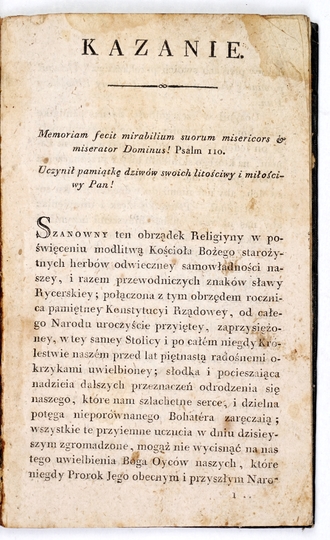 KAZANIE.
Memoriam fecit mirabilium suorum misericors &
miserator Dominus! Psalm 110.
Uczynił pamiątkę dziwów swoich litościwy i miłości-
wy Pan!
Szanowny ten obrządek Religiyny w po-
święceniu modlitwą Kościoła Bożego staroży-
tnych herbów odwieczney samowładności na-
szey, i razem przewodniczych znaków sławy
Rycerskiey; połączona z tym obrzędem roczni-
ca pamiętney Konstytucyi Rządowey, od całe-
go Narodu uroczyście przyiętey, zaprzysiężo-
ney, w tey samey Stolicy i po całém niegdy Kró-
lestwie naszém przed lat piętnastą radośnemi o-
krzykami uwielbioney; słodka i pocieszaiąca
nadzieia dalszych przeznaczeń odrodzenia się
naszego, które nam szlachetne serce, i dzielna
potęga nieporównanego Bohatéra zaręczaią;
wszystkie te przyiemne uczucia w dniu dzisiey-
szym zgromadzone, mogąż nie wycisnąć na nas
tego uwielbienia Boga Oyców naszych, które
niegdy Prorok Jego obecnym i przyszłym Naro-
1 ..